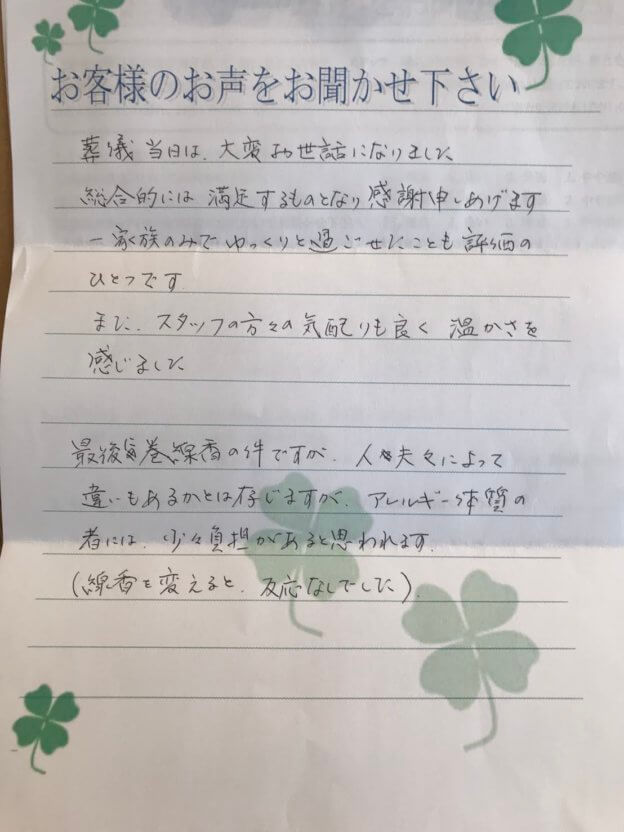 お客様のお声をお聞かせ下さい
葬儀当日は、大変お世話になりました
総合的には満足するものとなり感謝申しあげます
一家族のみでゆっくりと過ごせたことも評価の
ひとつです
また、スタッフの方々の気配りも良く 温かさを
感じました
最後に巻線香の件ですが、人夫々によって
違いもあるかとは存じますが、アレルギー体質の
者には、少々負担があると思われます。
(線香を変えると、反応なしでした)